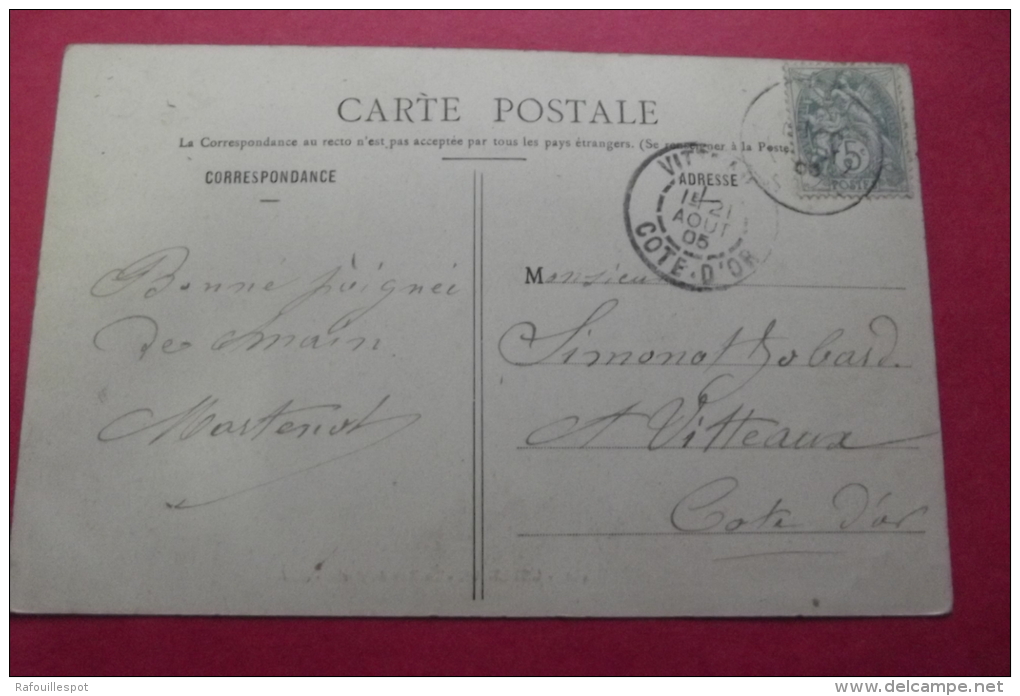 CARTE POSTALE
La Correspondance au recto n'est pas acceptée par tous les pays étrangers. (Se renseigner à la Poste
CORRESPONDANCE
ADRESSE
5c
POSTE
05
1E/21
AOUT
05
COTE-D'OR
Bonne poignée
de main
Martenot
Monsieur
Simonot Hobard
A Vitteaux
Cote d'or
Rafouillespot
www.delcampe.net